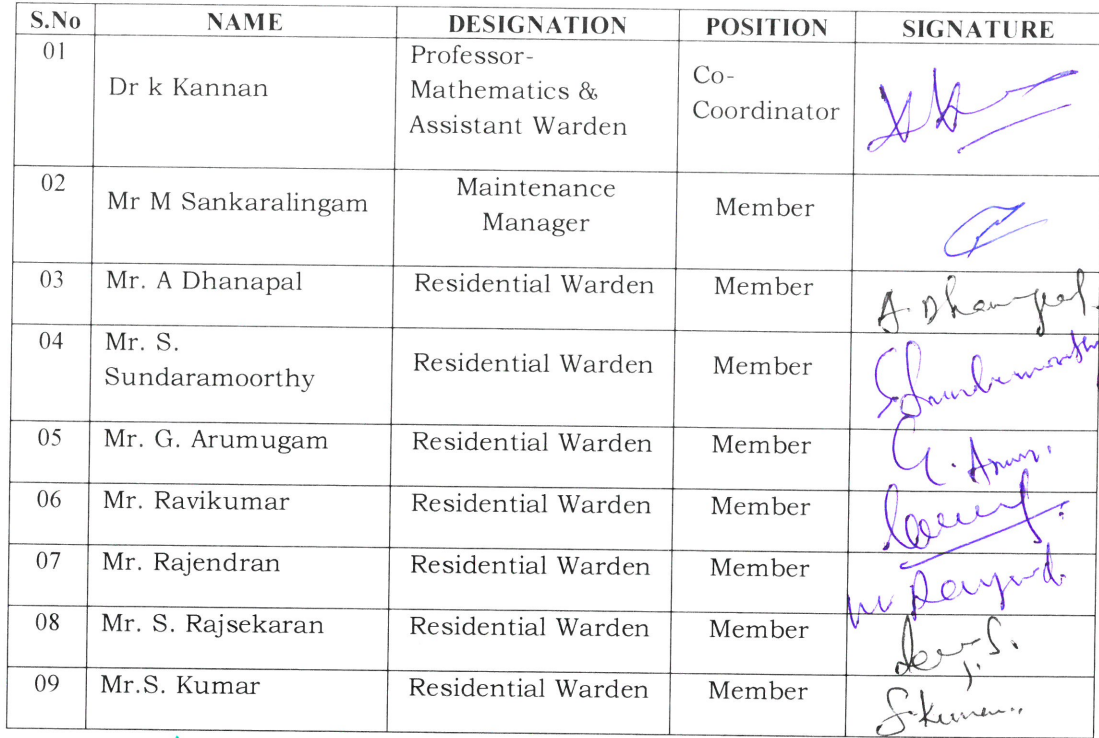 S.No NAME DESIGNATION POSITION SIGNATURE
01 Dr k Kannan Professor-
Mathematics &
Assistant Warden Co-
Coordinator
02 Mr M Sankaralingam Maintenance
Manager Member
03 Mr. A Dhanapal Residential Warden Member A. Dhanapal
04 Mr. S.
Sundaramoorthy Residential Warden Member
05 Mr. G. Arumugam Residential Warden Member G. Arum.
06 Mr. Ravikumar Residential Warden Member
07 Mr. Rajendran Residential Warden Member
08 Mr. S. Rajsekaran Residential Warden Member
09 Mr.S. Kumar Residential Warden Member S. Kumar